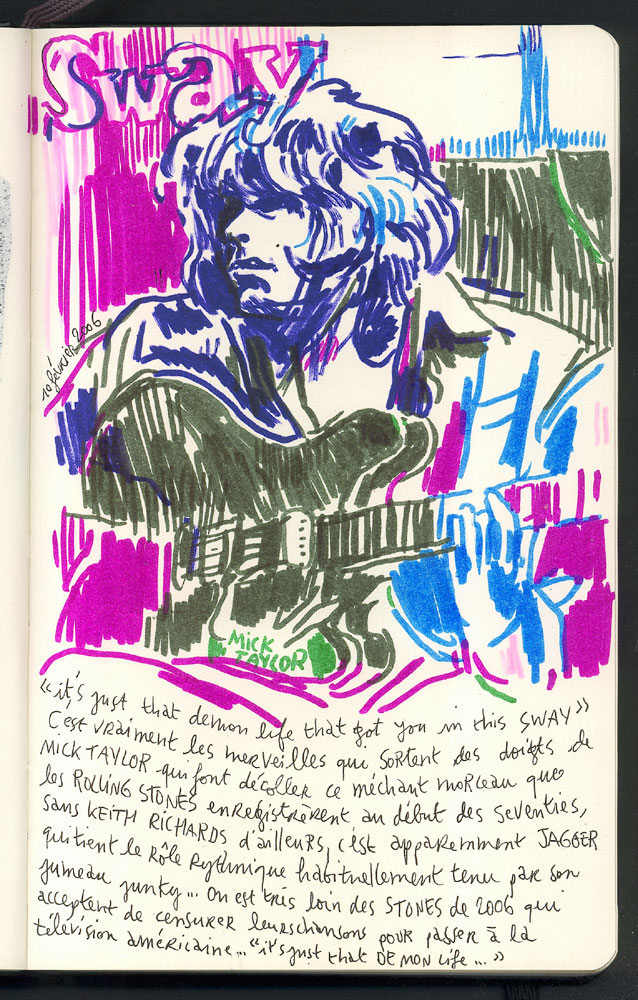 Sway
10 février 2006
MICK
TAYLOR
“it's just that demon life that got you in this SWAY”
C'est vraiment les merveilles qui sortent des doigts de
MICK TAYLOR qui font décoller ce méchant morceau que
les ROLLING STONES enregistrèrent au début des seventies,
sans KEITH RICHARDS d'ailleurs, c'est apparemment JAGGER
qui tient le rôle rythmique habituellement tenu par son
jumeau junky... On est très loin des STONES de 2006 qui
acceptent de censurer leurs chansons pour passer à la
télévision américaine... “it's just that DEMON life...”